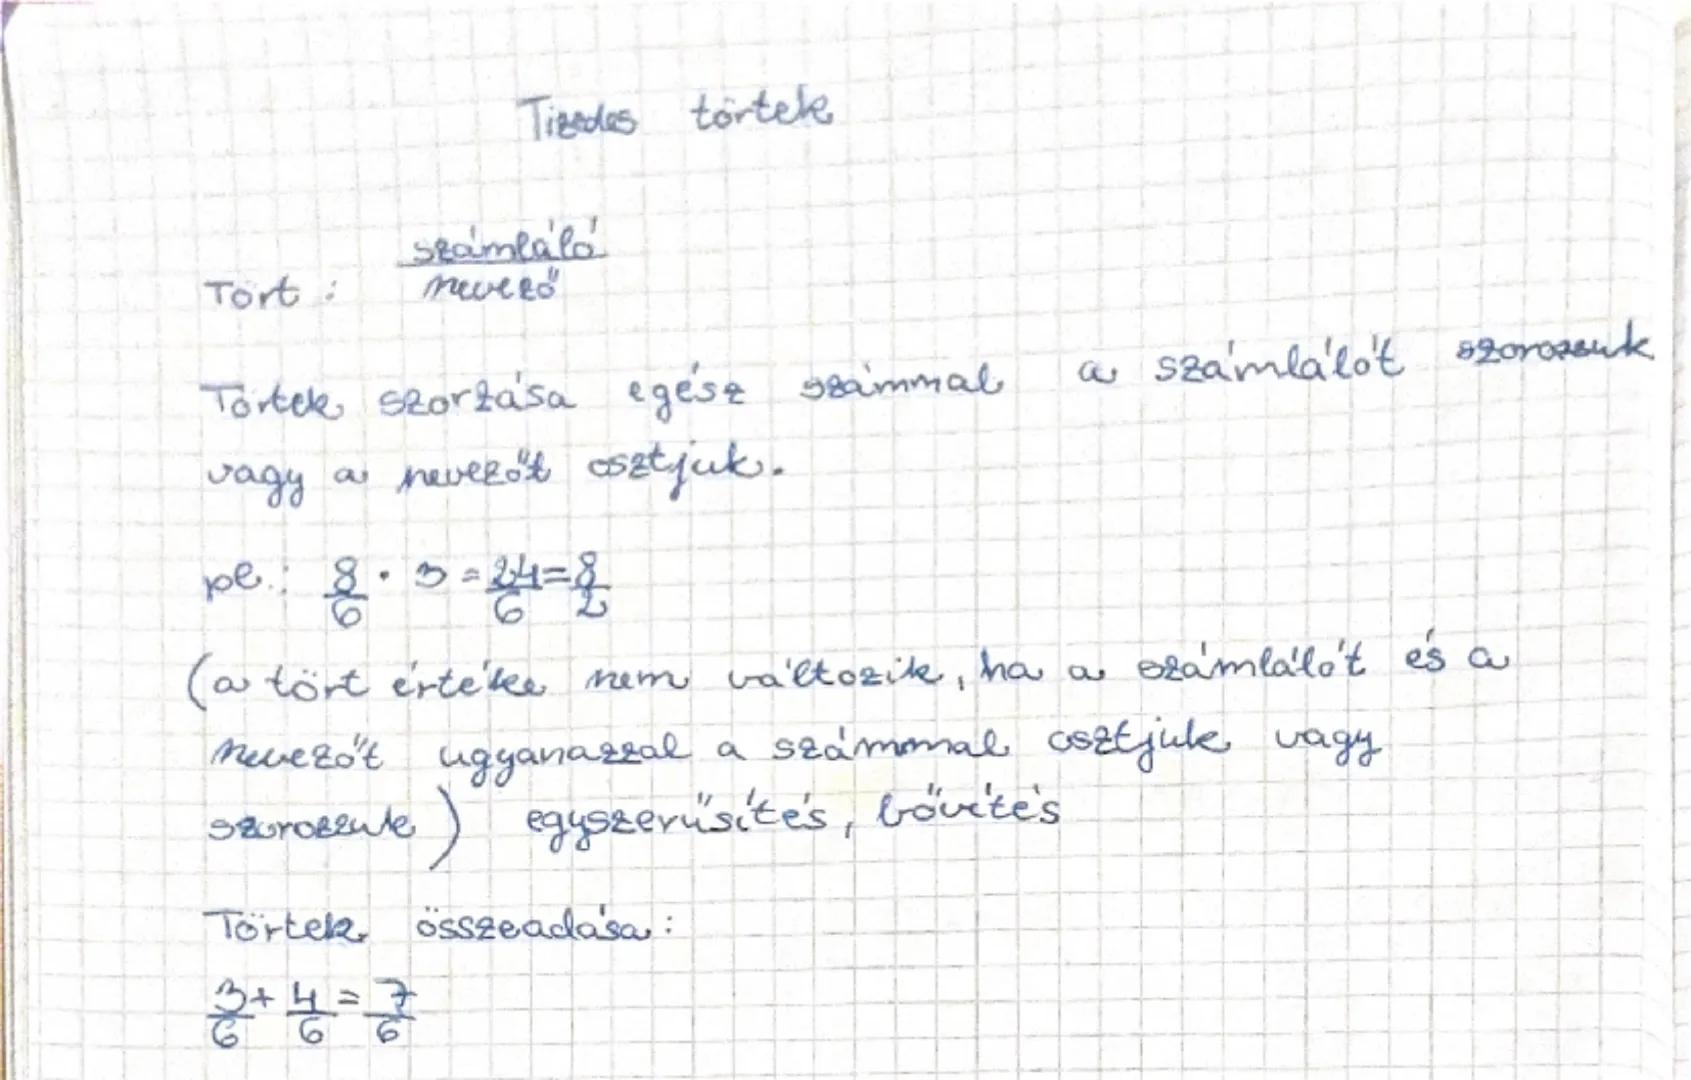 Tizedes törtek
számláló
Tört : nevező
Törtek szorzása egész számmal a számlálót szorozzuk
vagy a nevezőt osztjuk.
pl.: 8/6 · 3 = 24/6 = 8/2
(a tört értéke nem változik, ha a számlálót és a
nevezőt ugyanazzal a számmal osztjuk vagy
szorozzuk) egyszerűsítés, bővítés
Törtek összeadása :
3/6 + 4/6 = 7/6